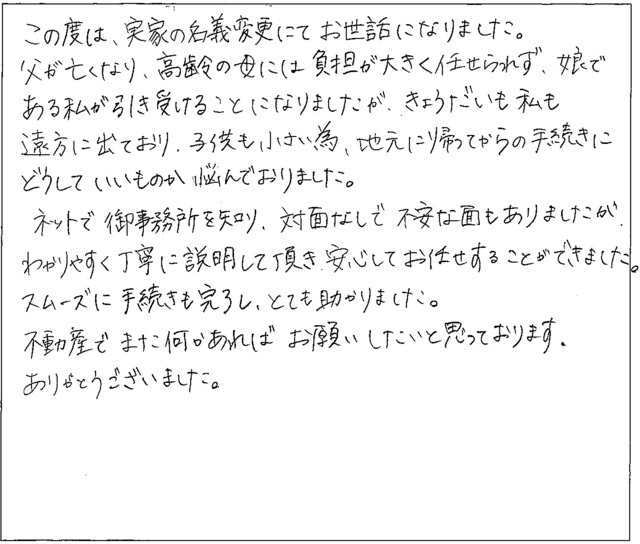 この度は、実家の名義変更にてお世話になりました。
父が亡くなり、高齢の母には負担が大きく任せられず、娘で
ある私が引き受けることになりましたが、きょうだいも私も
遠方に出ており、子供も小さい為、地元に帰ってからの手続きに
どうしていいものか悩んでおりました。
ネットで御事務所を知り、対面なしで不安な面もありましたが、
わかりやすく丁寧に説明して頂き、安心してお任せすることができました。
スムーズに手続きも完了し、とても助かりました。
不動産でまた何かあればお願いしたいと思っております。
ありがとうございました。